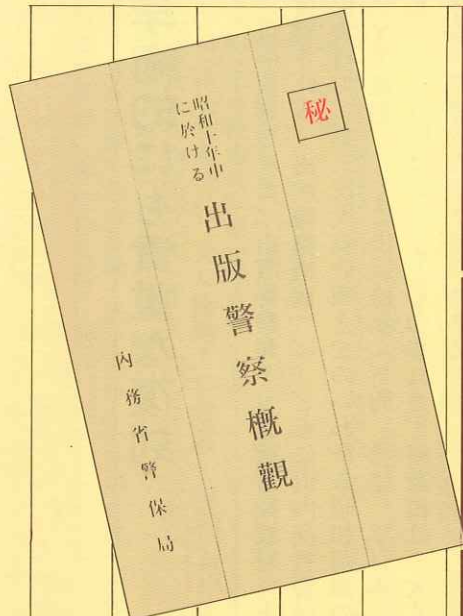 秘
昭和十年中
に於ける
出版警察概觀
內務省警保局